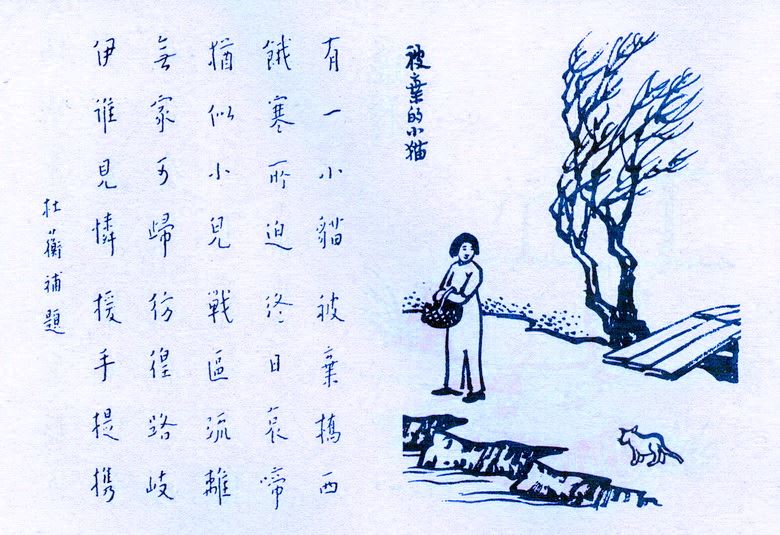 被棄的小猫
有一小貓被棄橋西
餓寒所迫終日哀啼
猶似小兒戰區流離
無家可歸彷徨路岐
伊谁見憐援手提携
杜蘅補題